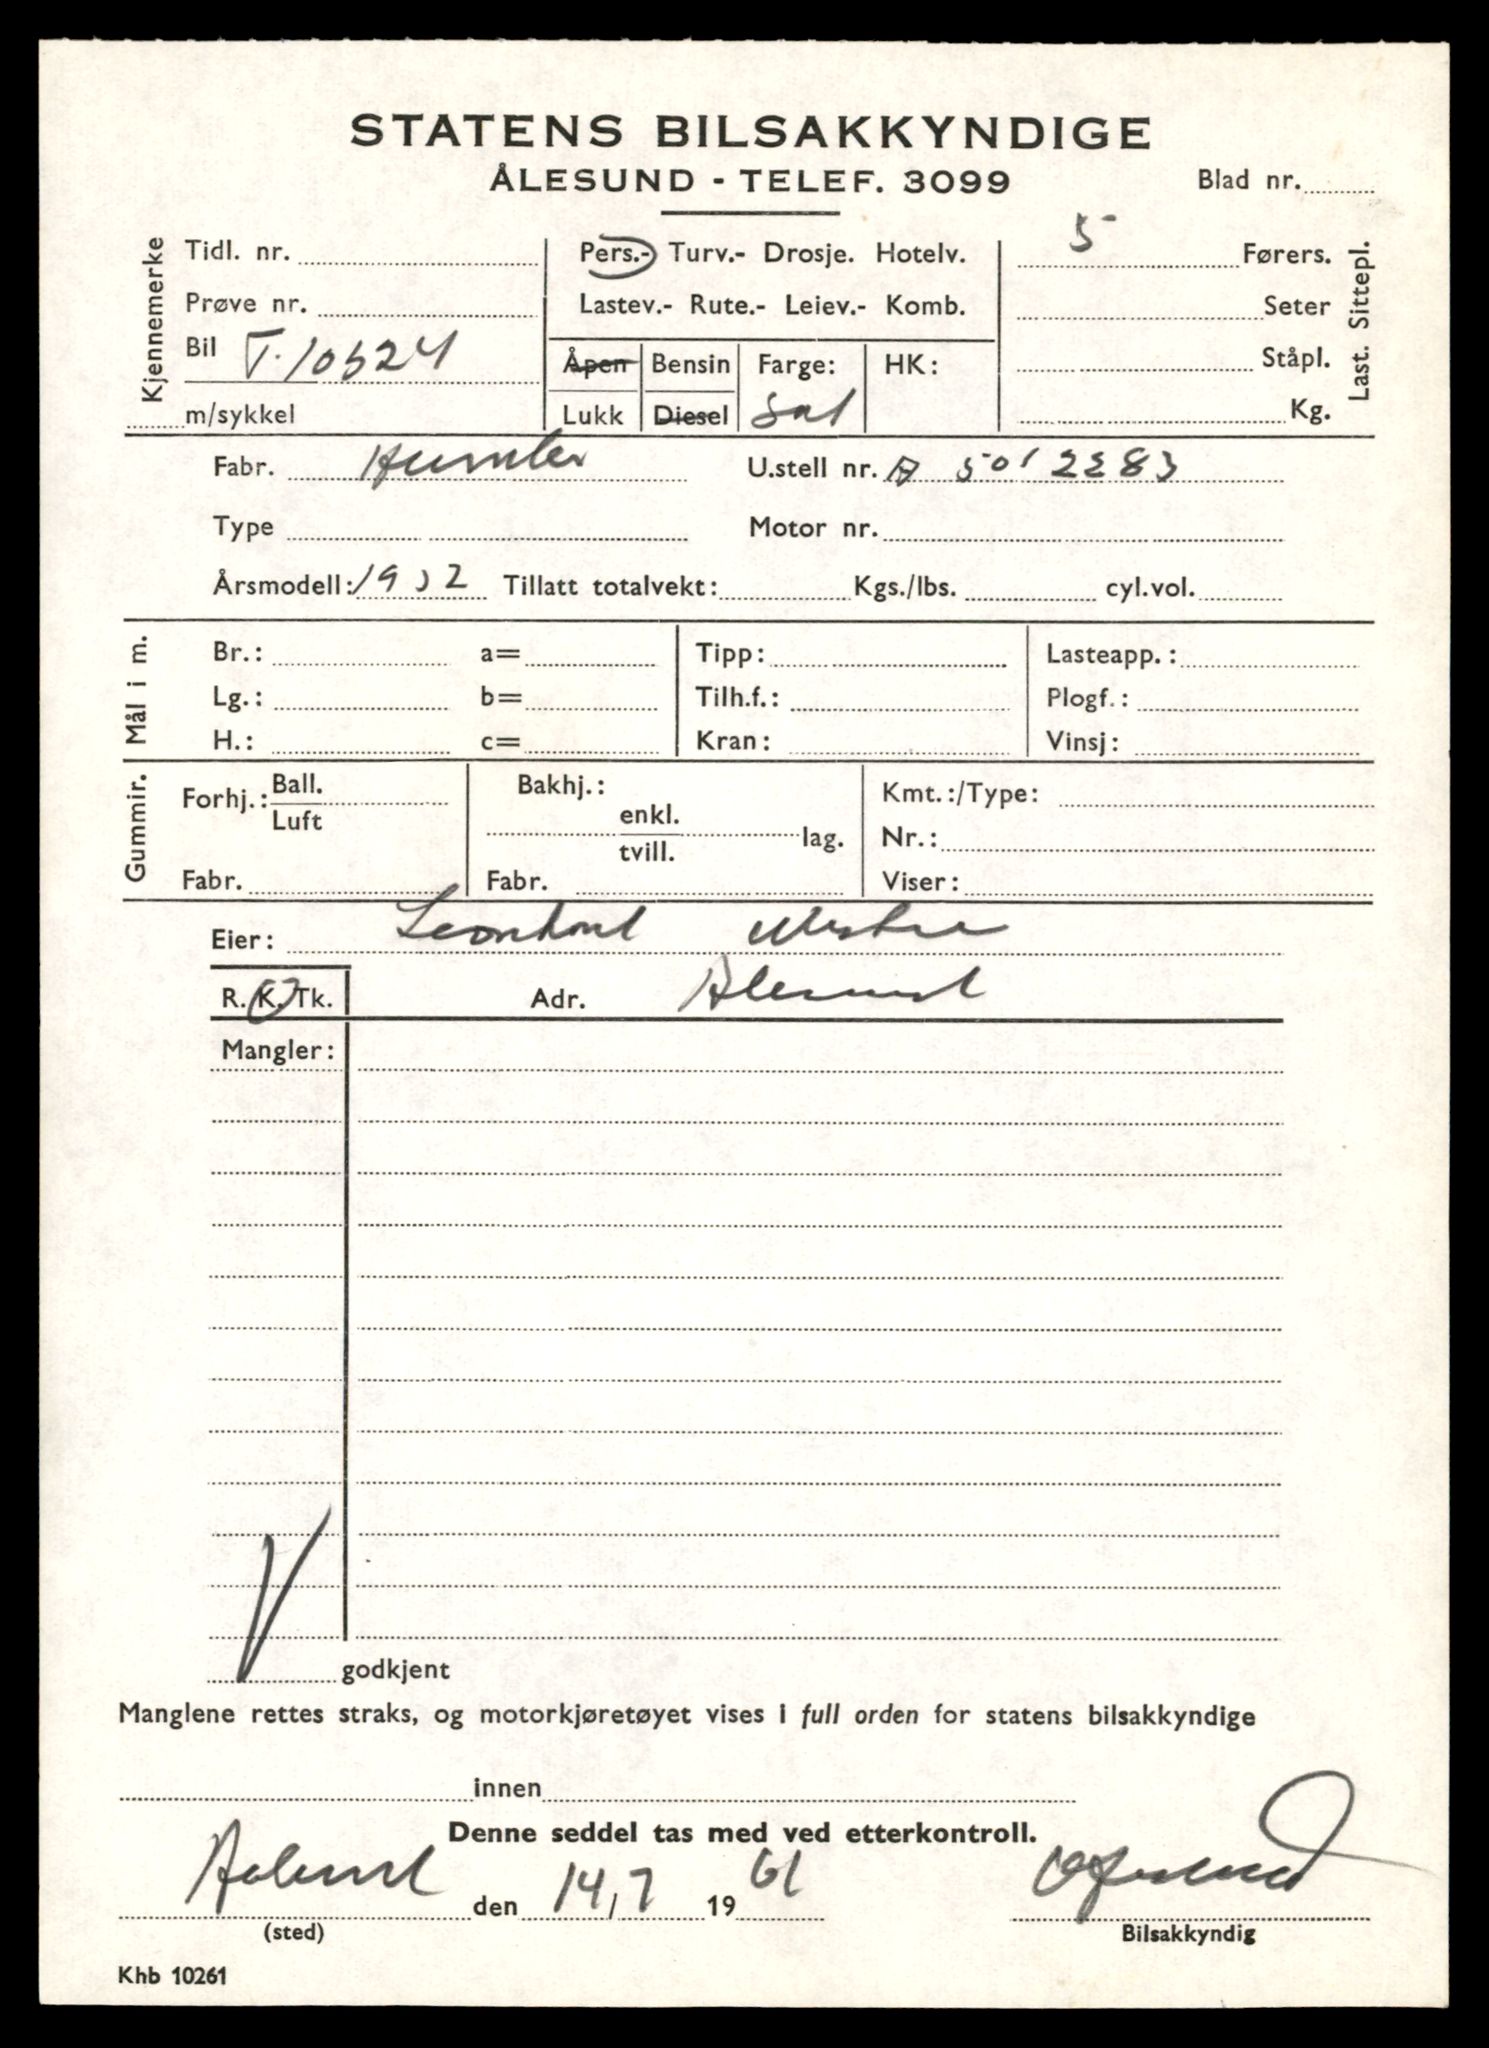 STATENS BILSAKKYNDIGE
ÅLESUND - TELEF. 3099
Blad nr.
Kjennemerke
Tidl. nr.
Prøve nr.
Bil T. 10524
m/sykkel
Pers.- Turv.- Drosje. Hotelv.
Lastev.- Rute.- Leiev.- Komb.
Åpen Bensin Farge: HK:
Lukk Diesel
5 Førers.
Seter
Ståpl.
Kg.
Last. Sittepl.
Fabr. Humber U.stell nr. A 5012283
Type Motor nr.
Årsmodell: 1952 Tillatt totalvekt: Kgs./lbs. cyl.vol.
Mål i m.
Br.: a= Tipp: Lasteapp.:
Lg.: b= Tilh.f.: Plogf.:
H.: c= Kran: Vinsj:
Gummir.
Forhj.: Ball.
Luft
Fabr.
Bakhj.:
enkl.
tvill. lag.
Fabr.
Kmt.:/Type:
Nr.:
Viser:
Eier: Leonhard
R. K. Tk. Adr. Ålesund
Mangler:
V godkjent
Manglene rettes straks, og motorkjøretøyet vises i full orden for statens bilsakkyndige
innen
Denne seddel tas med ved etterkontroll.
Aalesund den 14,7 1961
(sted) Bilsakkyndig
Khb 10261